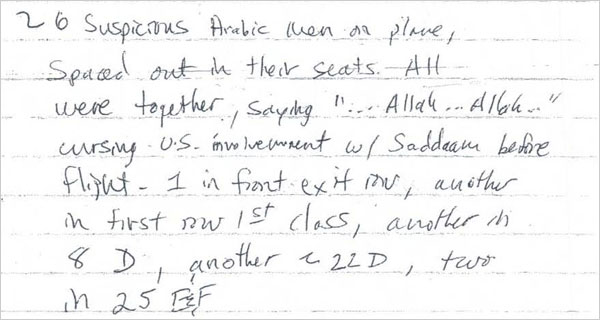 2 6 Suspicious Arabic men on plane,
Spaced out in their seats. All
were together, saying "... Allah... Allah..."
cursing U.S. involvement w/ Saddam before
flight - 1 in front exit row, another
in first row 1st class, another in
8 D, another ~ 22D, two
in 25 E&F